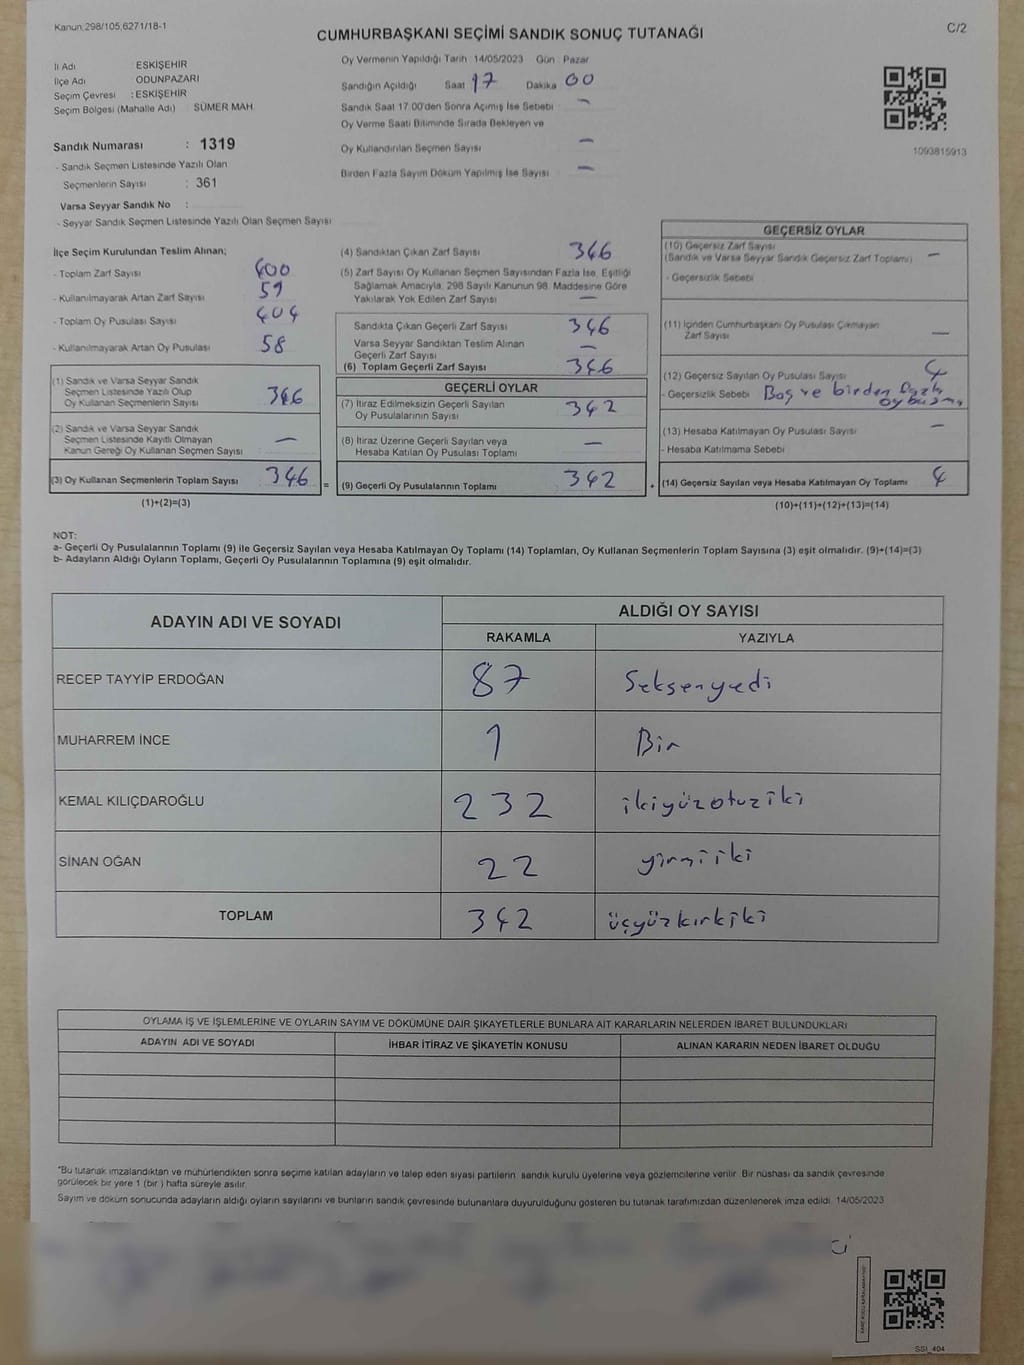 Kanun:298/105,6271/18-1
C/2
CUMHURBAŞKANI SEÇİMİ SANDIK SONUÇ TUTANAĞI
İl Adı : ESKİŞEHİR
İlçe Adı ODUNPAZARI
Seçim Çevresi : ESKİŞEHİR
Seçim Bölgesi (Mahalle Adı) SÜMER MAH.
Sandık Numarası : 1319
- Sandık Seçmen Listesinde Yazılı Olan
Seçmenlerin Sayısı : 361
Varsa Seyyar Sandık No :
- Seyyar Sandık Seçmen Listesinde Yazılı Olan Seçmen Sayısı
Oy Vermenin Yapıldığı Tarih 14/05/2023 Gün : Pazar
Sandığın Açıldığı Saat 17 Dakika 00
Sandık Saat 17:00'den Sonra Açımış İse Sebebi : —
Oy Verme Saati Bitiminde Sırada Bekleyen ve
Oy Kullandırılan Seçmen Sayısı —
Birden Fazla Sayım Döküm Yapılmış İse Sayısı —
1093815913
İlçe Seçim Kurulundan Teslim Alınan;
- Toplam Zarf Sayısı 400
- Kullanılmayarak Artan Zarf Sayısı 59
- Toplam Oy Pusulası Sayısı 404
- Kullanılmayarak Artan Oy Pusulası 58
(1) Sandık ve Varsa Seyyar Sandık
Seçmen Listesinde Yazılı Olup
Oy Kullanan Seçmenlerin Sayısı 346
(2) Sandık ve Varsa Seyyar Sandık
Seçmen Listesinde Kayıtlı Olmayan
Kanun Gereği Oy Kullanan Seçmen Sayısı —
(3) Oy Kullanan Seçmenlerin Toplam Sayısı 346 =
(1)+(2)=(3)
(4) Sandıktan Çıkan Zarf Sayısı 346
(5) Zarf Sayısı Oy Kullanan Seçmen Sayısından Fazla İse, Eşitliği
Sağlamak Amacıyla, 298 Sayılı Kanunun 98. Maddesine Göre
Yakılarak Yok Edilen Zarf Sayısı —
Sandıkta Çıkan Geçerli Zarf Sayısı 346
Varsa Seyyar Sandıktan Teslim Alınan
Geçerli Zarf Sayısı —
(6) Toplam Geçerli Zarf Sayısı 346
GEÇERLİ OYLAR
(7) İtiraz Edilmeksizin Geçerli Sayılan
Oy Pusulalarının Sayısı 342
(8) İtiraz Üzerine Geçerli Sayılan veya
Hesaba Katılan Oy Pusulası Toplamı —
(9) Geçerli Oy Pusulalarının Toplamı 342 +
GEÇERSİZ OYLAR
(10) Geçersiz Zarf Sayısı
(Sandık ve Varsa Seyyar Sandık Geçersiz Zarf Toplamı) —
- Geçersizlik Sebebi
(11) İçinden Cumhurbaşkanı Oy Pusulası Çıkmayan
Zarf Sayısı —
(12) Geçersiz Sayılan Oy Pusulası Sayısı 4
- Geçersizlik Sebebi Boş ve birden fazla
(13) Hesaba Katılmayan Oy Pusulası Sayısı —
- Hesaba Katılmama Sebebi
(14) Geçersiz Sayılan veya Hesaba Katılmayan Oy Toplamı 4
(10)+(11)+(12)+(13)=(14)
NOT:
a- Geçerli Oy Pusulalarının Toplamı (9) ile Geçersiz Sayılan veya Hesaba Katılmayan Oy Toplamı (14) Toplamları, Oy Kullanan Seçmenlerin Toplam Sayısına (3) eşit olmalıdır. (9)+(14)=(3)
b- Adayların Aldığı Oyların Toplamı, Geçerli Oy Pusulalarının Toplamına (9) eşit olmalıdır.
ADAYIN ADI VE SOYADI ALDIĞI OY SAYISI
RAKAMLA YAZIYLA
RECEP TAYYİP ERDOĞAN 87 Seksenyedi
MUHARREM İNCE 1 Bir
KEMAL KILIÇDAROĞLU 232 ikiyüzotuziki
SİNAN OĞAN 22 yirmiiki
TOPLAM 342 üçyüzkırkiki
OYLAMA İŞ VE İŞLEMLERİNE VE OYLARIN SAYIM VE DÖKÜMÜNE DAİR ŞİKAYETLERLE BUNLARA AİT KARARLARIN NELERDEN İBARET BULUNDUKLARI
ADAYIN ADI VE SOYADI İHBAR İTİRAZ VE ŞİKAYETİN KONUSU ALINAN KARARIN NEDEN İBARET OLDUĞU
*Bu tutanak imzalandıktan ve mühürlendikten sonra seçime katılan adayların ve talep eden siyasi partilerin sandık kurulu üyelerine veya gözlemcilerine verilir. Bir nüshası da sandık çevresinde
görülecek bir yere 1 (bir ) hafta süreyle asılır.
Sayım ve döküm sonucunda adayların aldığı oyların sayılarını ve bunların sandık çevresinde bulunanlara duyurulduğunu gösteren bu tutanak tarafımızdan düzenlenerek imza edildi. 14/05/2023
SSI_404